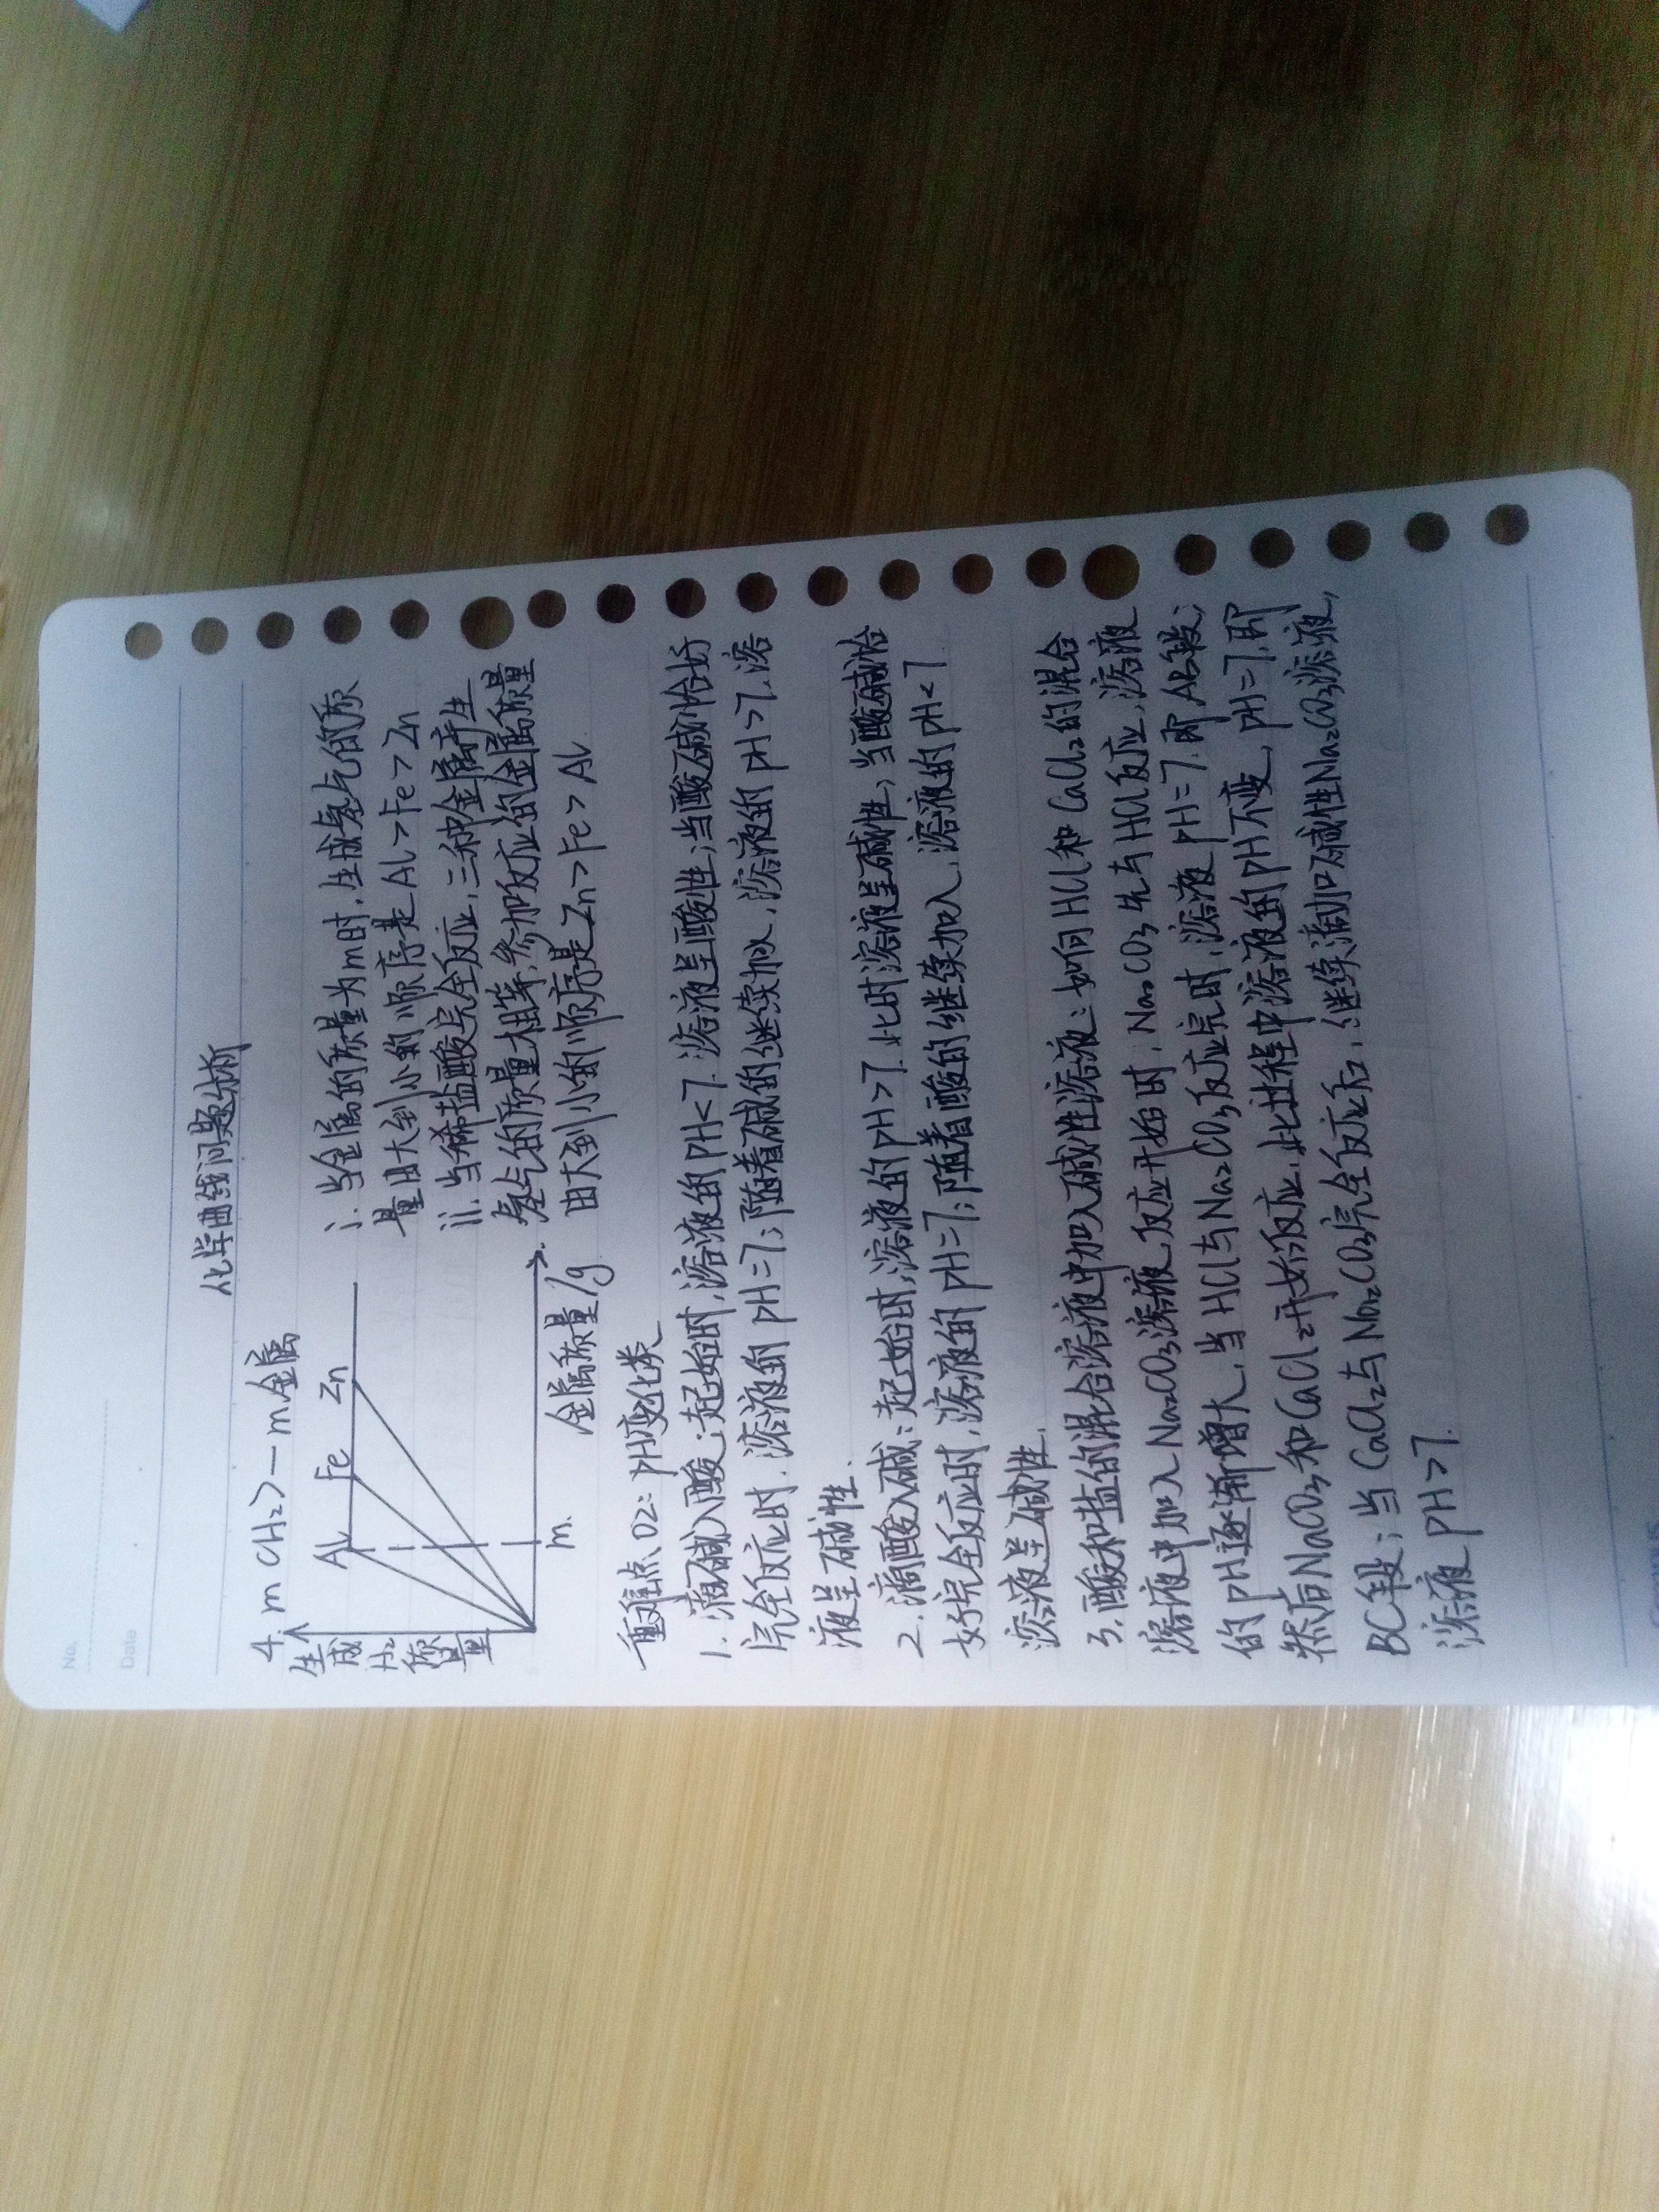 No.
Date
化学曲线问题分析
4. m(H₂)—m金属
生成H₂质量
Al Fe Zn
m
金属质量/g
i. 当金属的质量为m时,生成氢气的质
量由大到小的顺序是Al>Fe>Zn
ii. 当稀盐酸完全反应,三种金属产生
氢气的质量相等,参加反应的金属质量
由大到小的顺序是Zn>Fe>Al
重难点02:pH变化类
1. 滴碱入酸:起始时,溶液的pH<7.溶液呈酸性;当酸碱恰好
完全反应时.溶液的pH=7;随着碱的继续加入,溶液的pH>7.溶
液呈碱性.
2. 滴酸入碱:起始时,溶液的pH>7.此时溶液呈碱性;当酸碱恰
好完全反应时,溶液的pH=7;随着酸的继续加入,溶液的pH<7
溶液呈碱性.
3. 酸和盐的混合溶液中加入碱性溶液:如向HCl和CaCl₂的混合
溶液中加入Na₂CO₃溶液,反应开始时,Na₂CO₃先与HCl反应,溶液
的pH逐渐增大,当HCl与Na₂CO₃反应完时,溶液pH=7.即AB段;
然后Na₂CO₃和CaCl₂开始反应,此过程中溶液的pH不变,pH=7,即
BC段;当CaCl₂与Na₂CO₃完全反应后,继续滴加碱性Na₂CO₃溶液,
溶液pH>7.